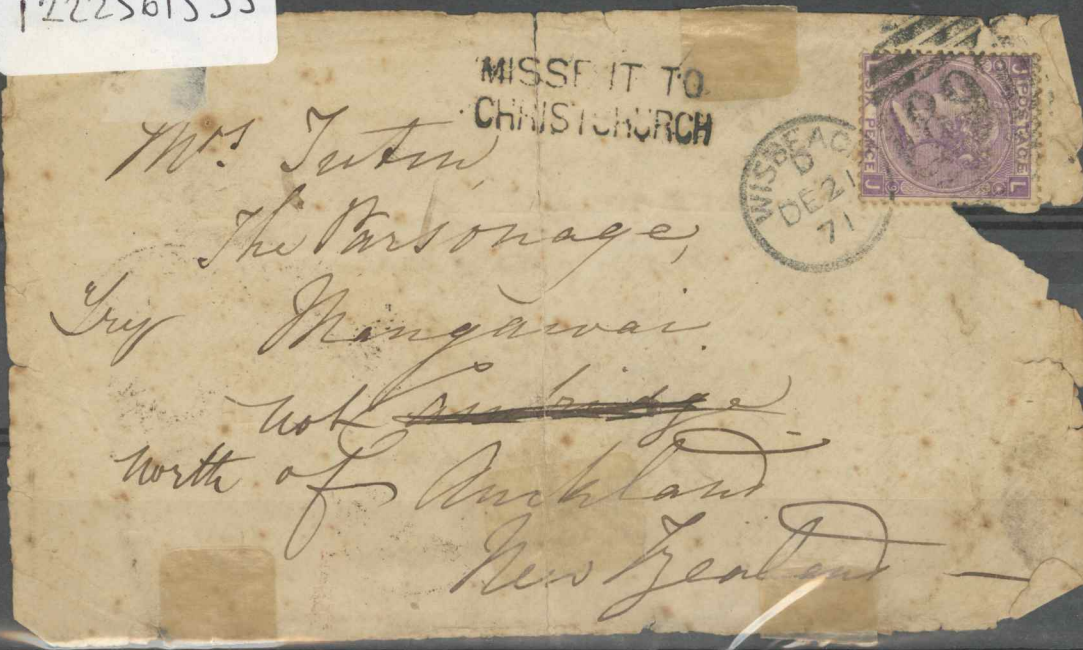 MISSENT TO
CHRISTCHURCH
WISBEACH
D
DE 21
71
POSTAGE
SIX PENCE
J
L
Mrs Tutin,
The Parsonage,
Try Mangawai
not Cambridge
north of Auckland
New Zealand